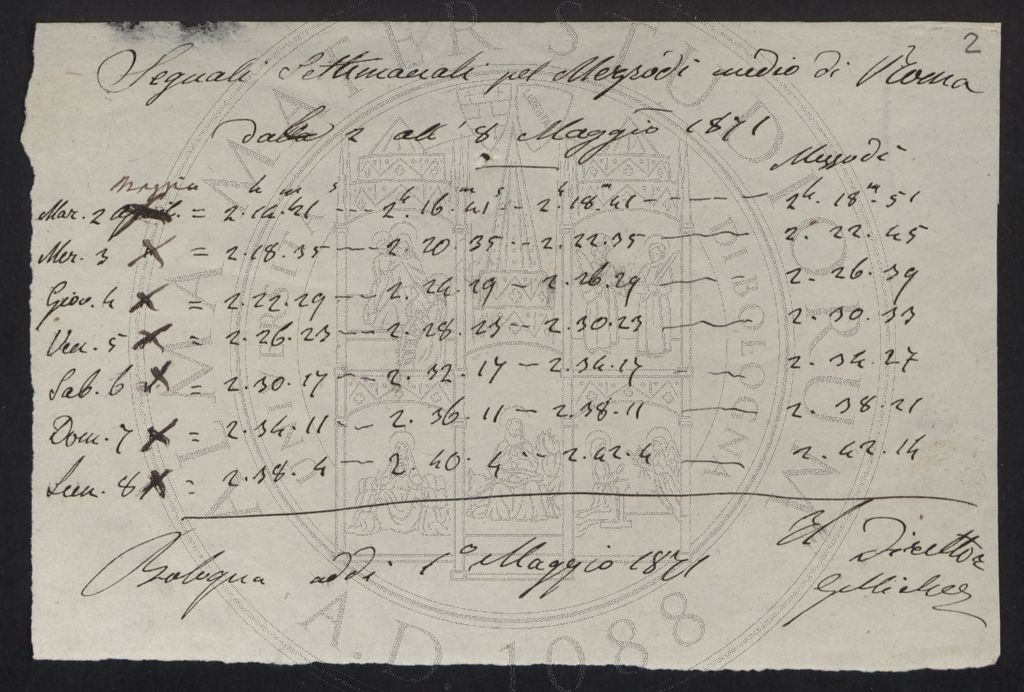 2
Segnali Settimanali pel Mezzodì medio di Roma
dal 2 all' 8 Maggio 1871
Mezzodì
Maggio h m s h m s h m h m
Mar. 2 = 2.14.41 - - 2.16.41 - - 2.18.41 - - - - 2.18.51
Mer. 3 = 2.18.35 - - 2.20.35 - - 2.22.35 — 2.22.45
Giov. 4 = 2.22.29 - - 2.24.29 - 2.26.29 — 2.26.39
Ven. 5 = 2.26.23 - - 2.28.23 - 2.30.23 — 2.30.33
Sab. 6 = 2.30.17 - - 2.32.17 - 2.34.17 — 2.34.27
Dom. 7 = 2.34.11 - - 2.36.11 - 2.38.11 — 2.38.21
Lun. 8 = 2.38.4 — 2.40.4 - - 2.42.4 — 2.42.14
Il Direttore
Bologna addì 1° Maggio 1871
ALMA MATER STUDIORUM
UNIVERSITA DI BOLOGNA
A.D. 1088